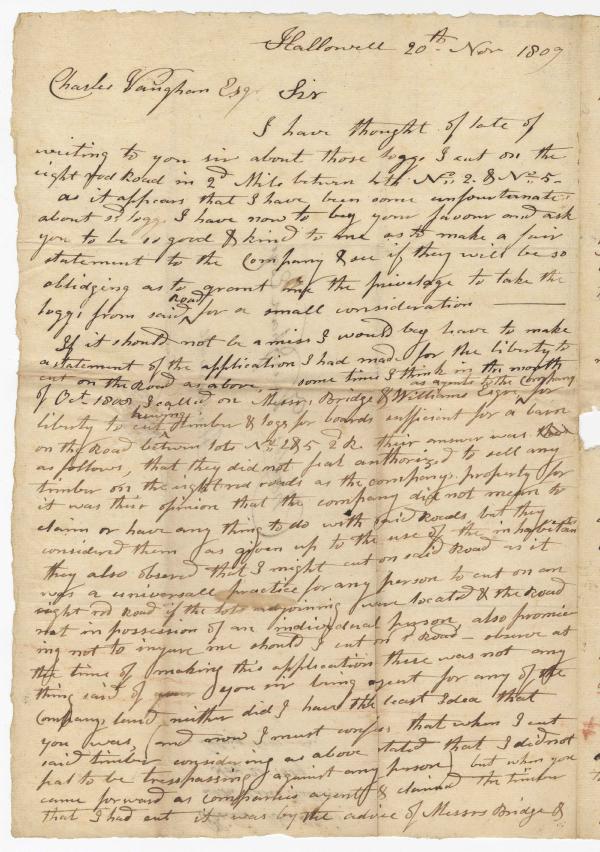 Hallowell 20th Nov 1809
Charles Vaughan Esqr Sir
I have thought of late of
writing to you sir about those loggs I cut on the
eight rod Road in 2d Mile betwen loth No. 2. & No. 5-
as it appears that I have been some unfourtunate
about sd loggs I have now to beg your favour and ask
you to be so good & kind to me as to make a fair
statement to the Company & see if they will be so
obliding as to grant me the privelage to take the
loggs from said Road for a small consideration
If it should not be amiss I would beg leave to make
a statement of the application I had made for the liberty to
cut on the Road as above, some time I think in the month
of Oct. 1808, I called on Messrs Bridge & Williams Esqrs as agents to the Company for
liberty to cut hewing timber & logs for boards sufficient for a barn
on the Road betwen lots No. 2 & 5 2 R their answer was
as follows, that they did not feal authorized to sell any
timber on the eight rod roads as the companys property for
it was their opinion that the company did not mean to
claim or have any thing to do with said Roads, but they
considered them as given up to the use of the inhabitants
they also obsered that I might cut on said Road as it
was a universall practice for any person to cut on an
eight rod Road if the lots adjoining were located & the Road
not in possession of an individual person, also promis
ing not to injure me should I cut on sd Road - observe at
the time of making this application there was not any
thing said of you sir being agent for any of the
Companys land neither did I have the least Idea that
you was, (and now I must confess that when I cut
said timber considering as above stated that I did not
feal to be tresspassing against any person) but when you
came forward as companies agent & claimed the timber
that I had cut it was by the advice of Messrs Bridge &